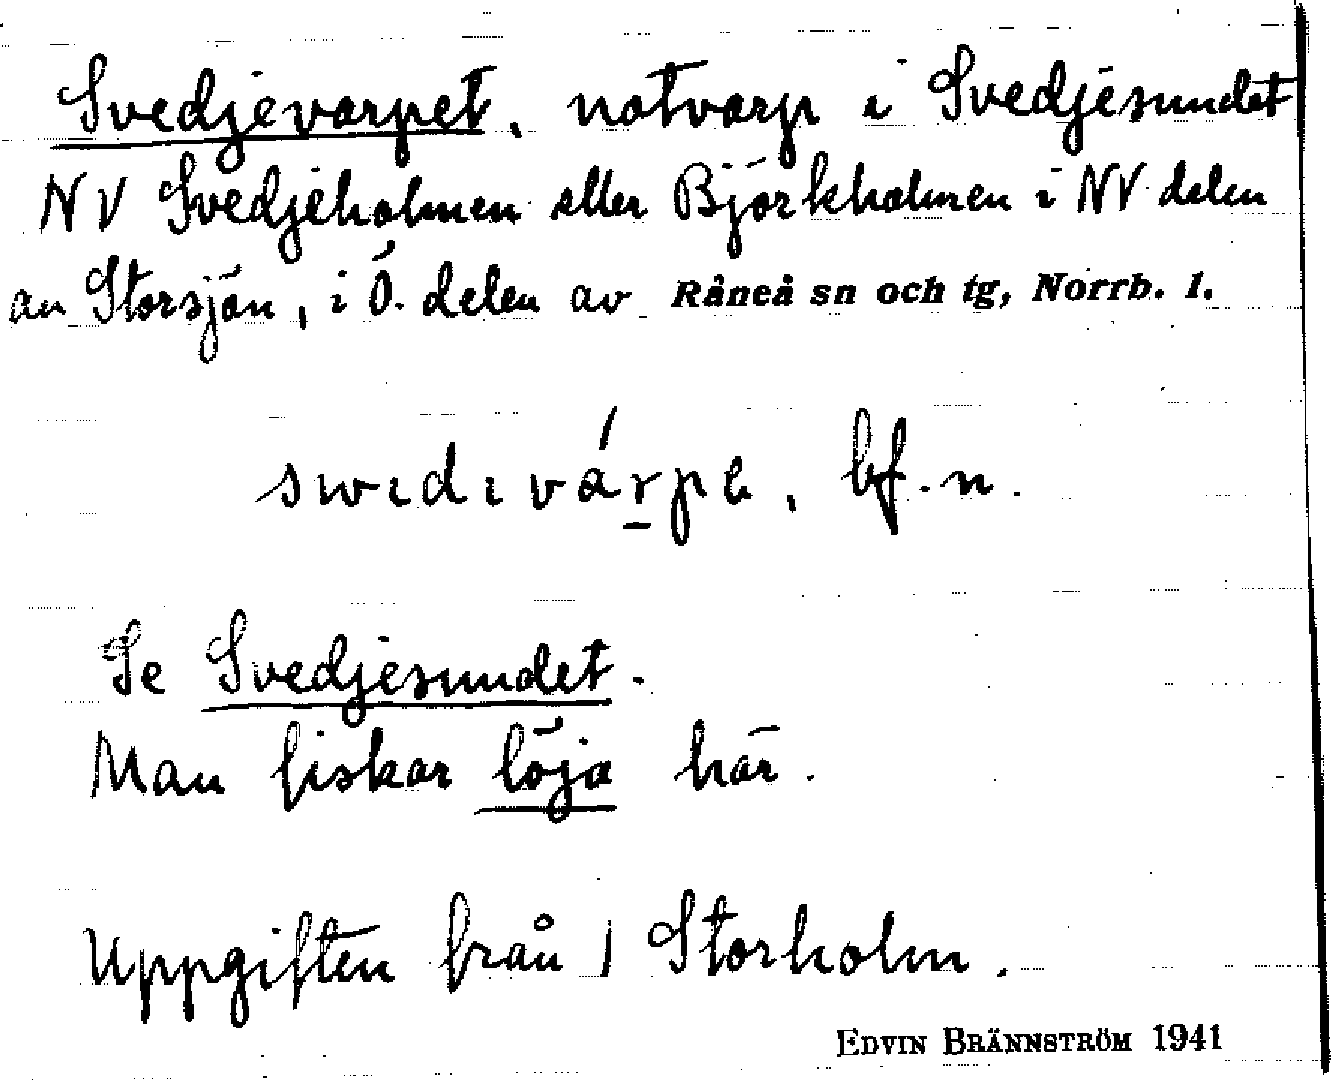 Svedjevarpet, notvarp i Svedjesundet
NV Svedjeholmen eller Björkholmen i NV delen
av Storsjön, i Ö. delen av Råneå sn och tg, Norrb. l.
swɩdɩvárpɐ, bf. n.
Se Svedjesundet.
Man fiskar löja här.
Uppgiften från 1 Storholm.
EDVIN BRÄNNSTRÖM 1941